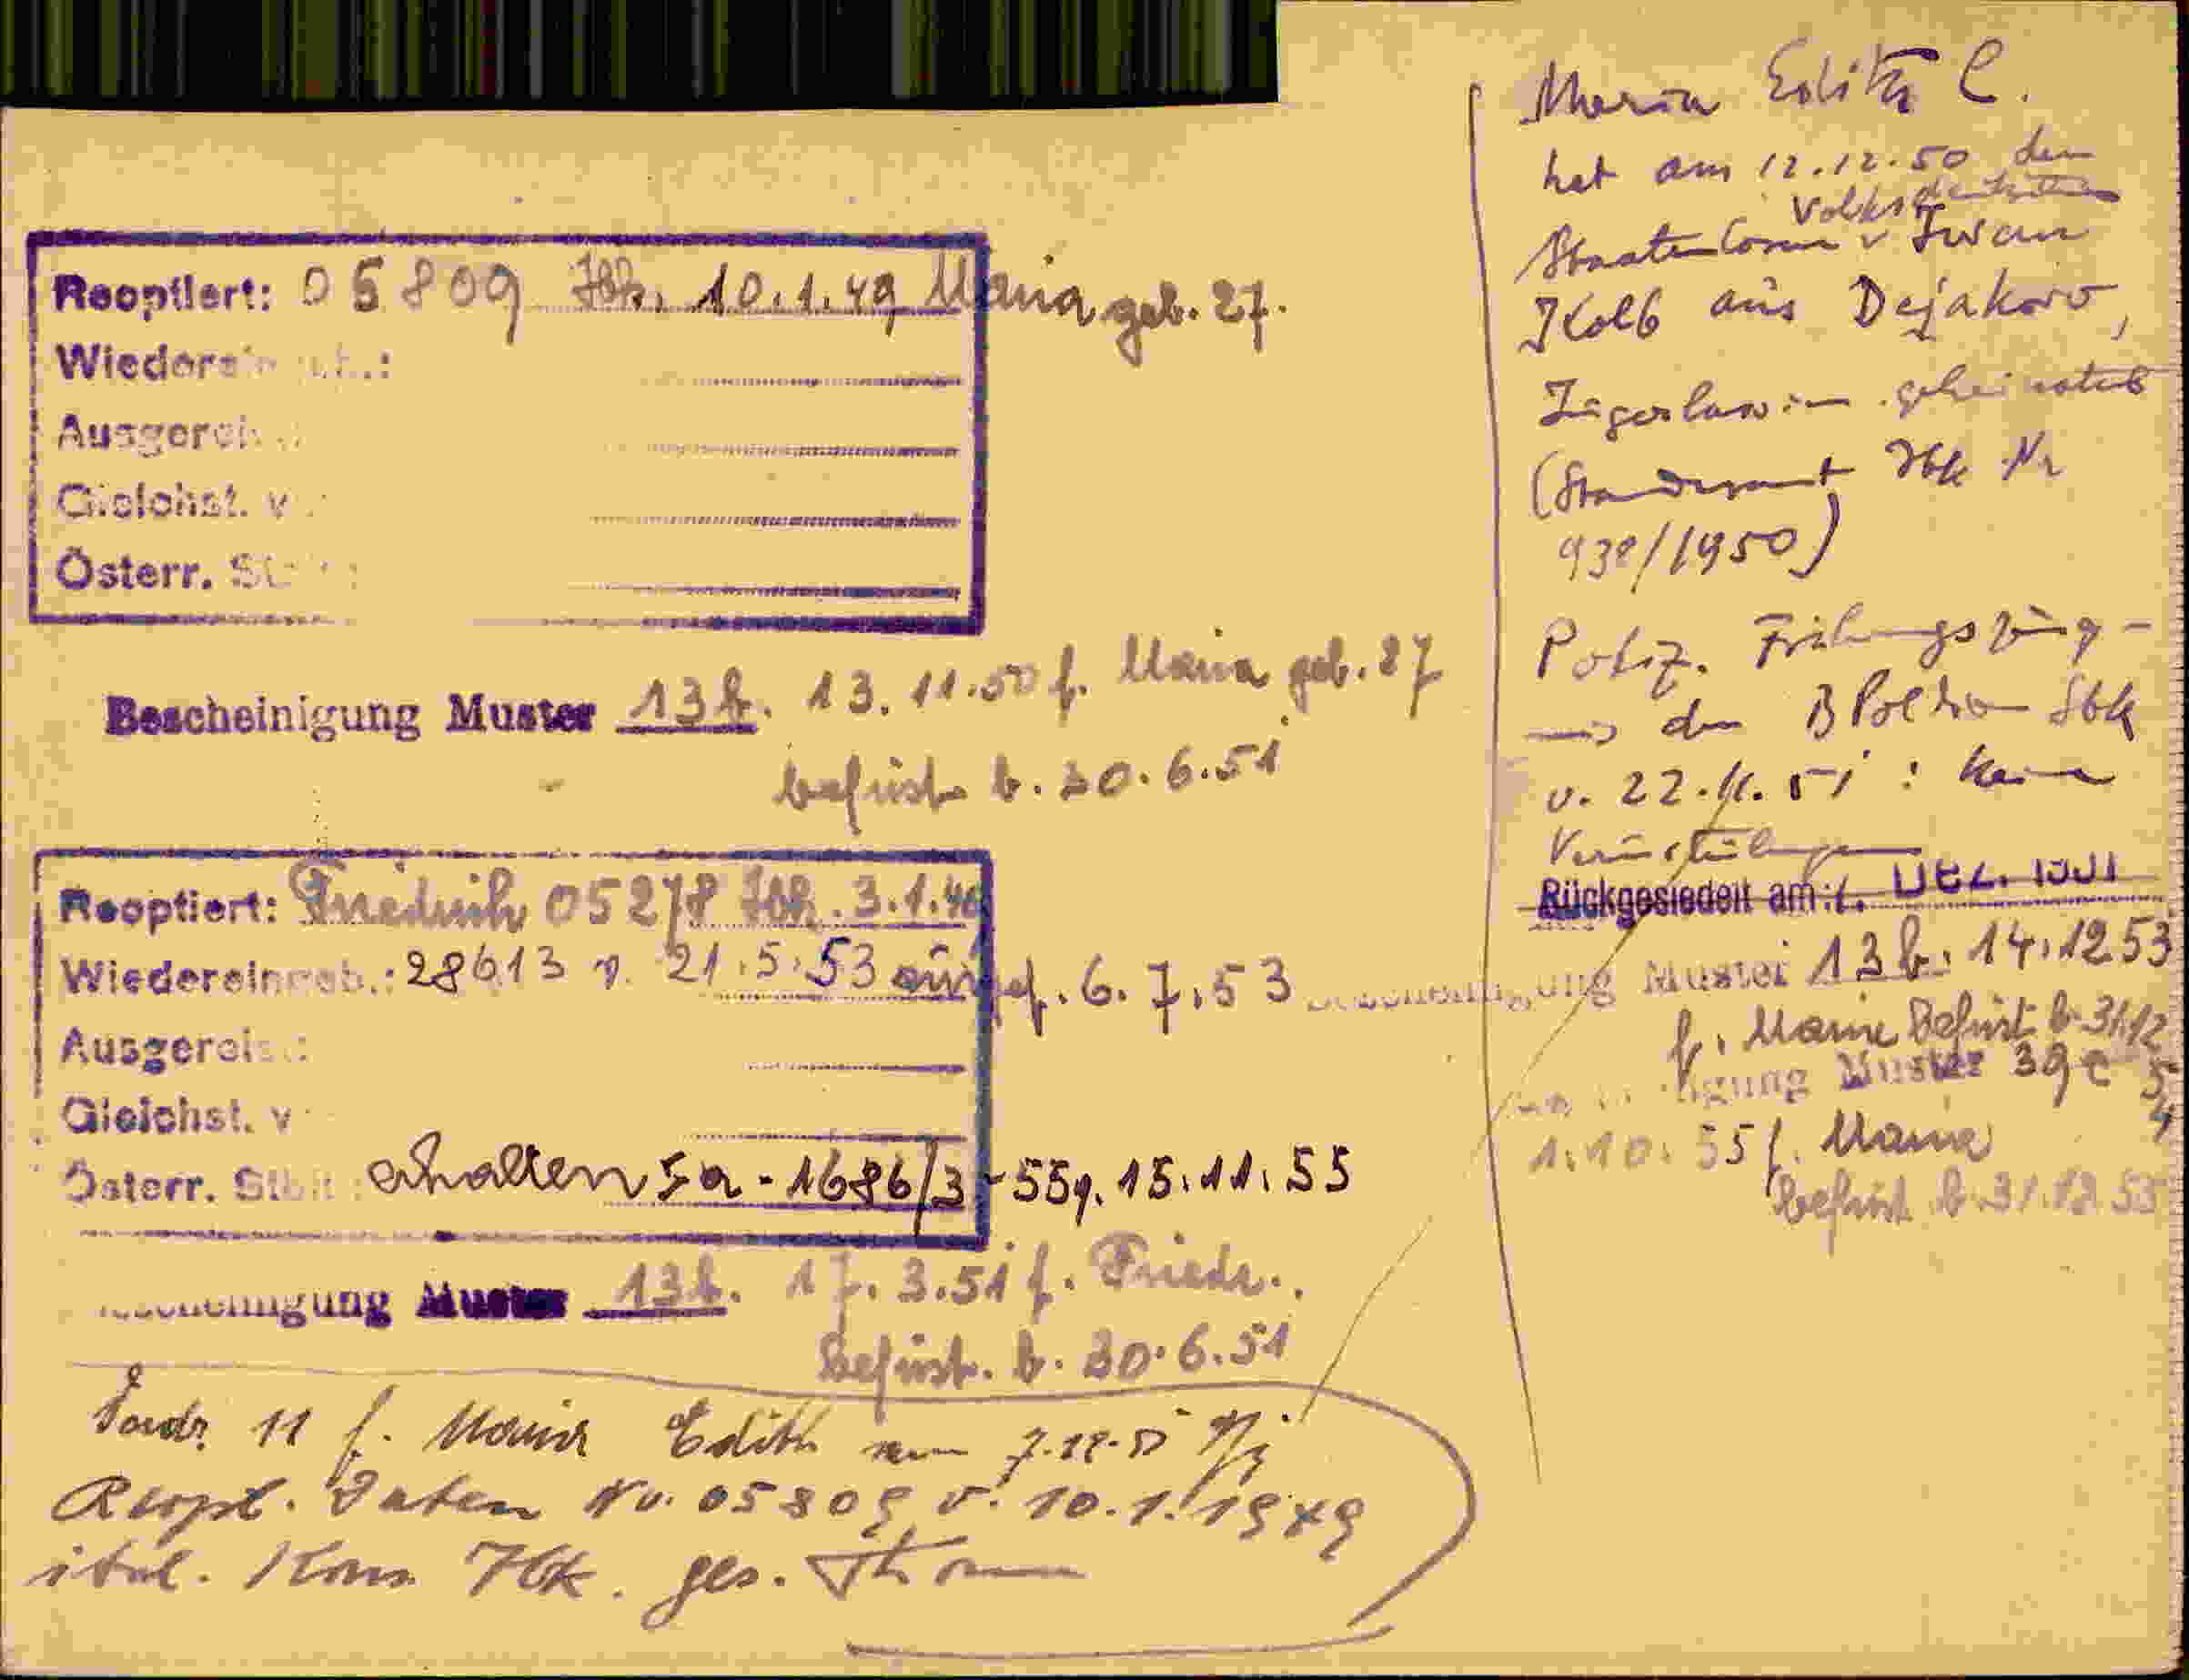 Reoptiert: 05809 Ibk. 10.1.49 Maria geb. 27.
Wiedereinb.:
Ausgereist:
Gleichst. v
Österr. St
Bescheinigung Muster 13b. 13.11.50 f. Maria geb. 27
befrist. b. 30.6.51
Reoptiert: Friedrich 05278 Ibk. 3.1.49
Wiedereinb.: 28613 v. 21.5.53 ausgef. 6.7.53
Ausgereist:
Gleichst. v
Österr. Stb erhalten Ia-1686/3-55 v. 15.11.55
Bescheinigung Muster 13b. 17.3.51 f. Friedr.
Befrist. b. 30.6.51
11 f. Maria Edith 7.12.51
Reopt. Daten Nr. 05809 v. 10.1.1949
ital. Kons. Ibk. ges.
Maria Edith C.
hat am 12.12.50 den
Volksdeutschen
Staatenlosen Iwan
Kolb aus Dejakovo,
Jugoslawien geheiratet
(Standesamt Ibk Nr
938/1950)
Poliz. Führungszeug-
nis der BPoldion Ibk
v. 22.11.51: keine
Verurteilungen
Rückgesiedelt am: 1. DEZ. 1951
Bescheinigung Muster 13b. 14.12.53
f. Maria Befrist. b. 31.12.54
Bescheinigung Muster 39c
1.10.55 f. Maria
Befrist. b. 31.12.55